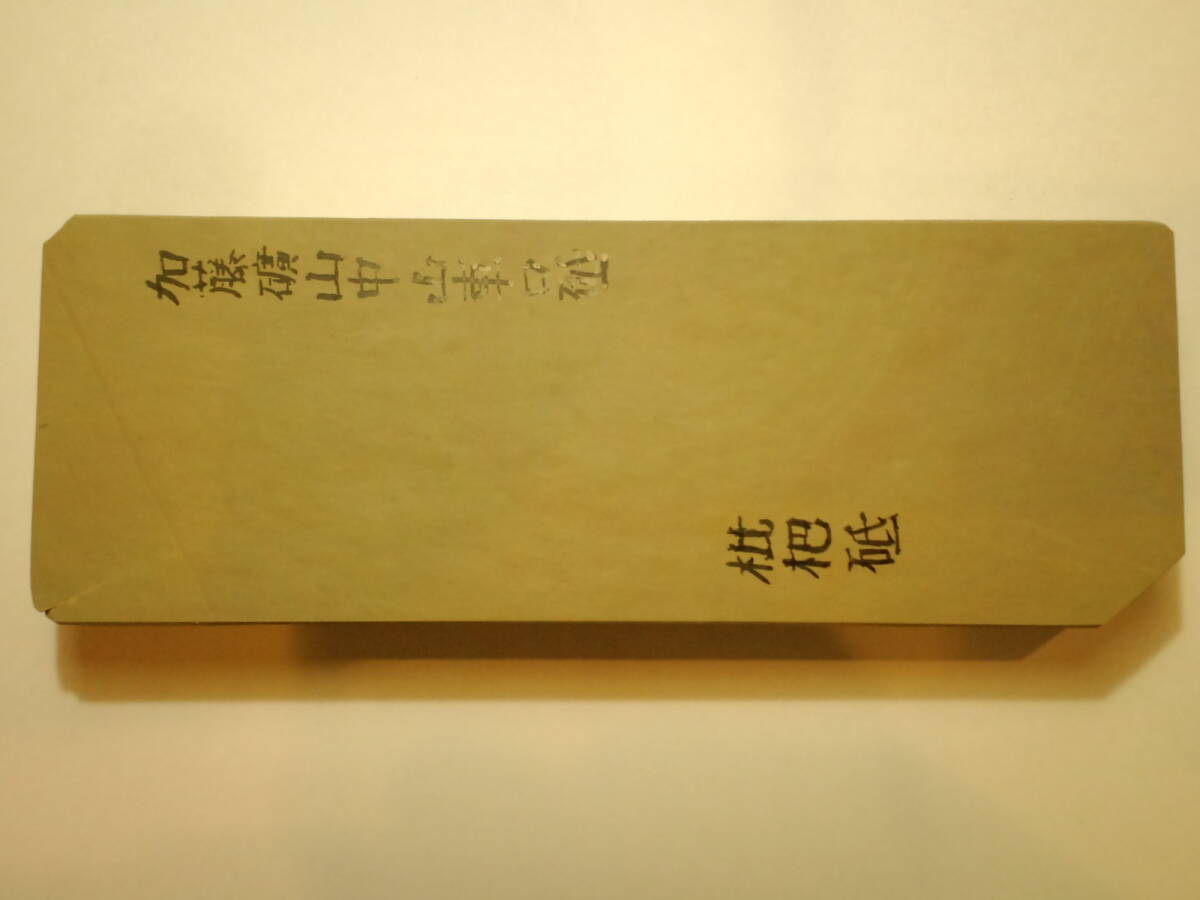 加藤礦山中山
枇杷砥